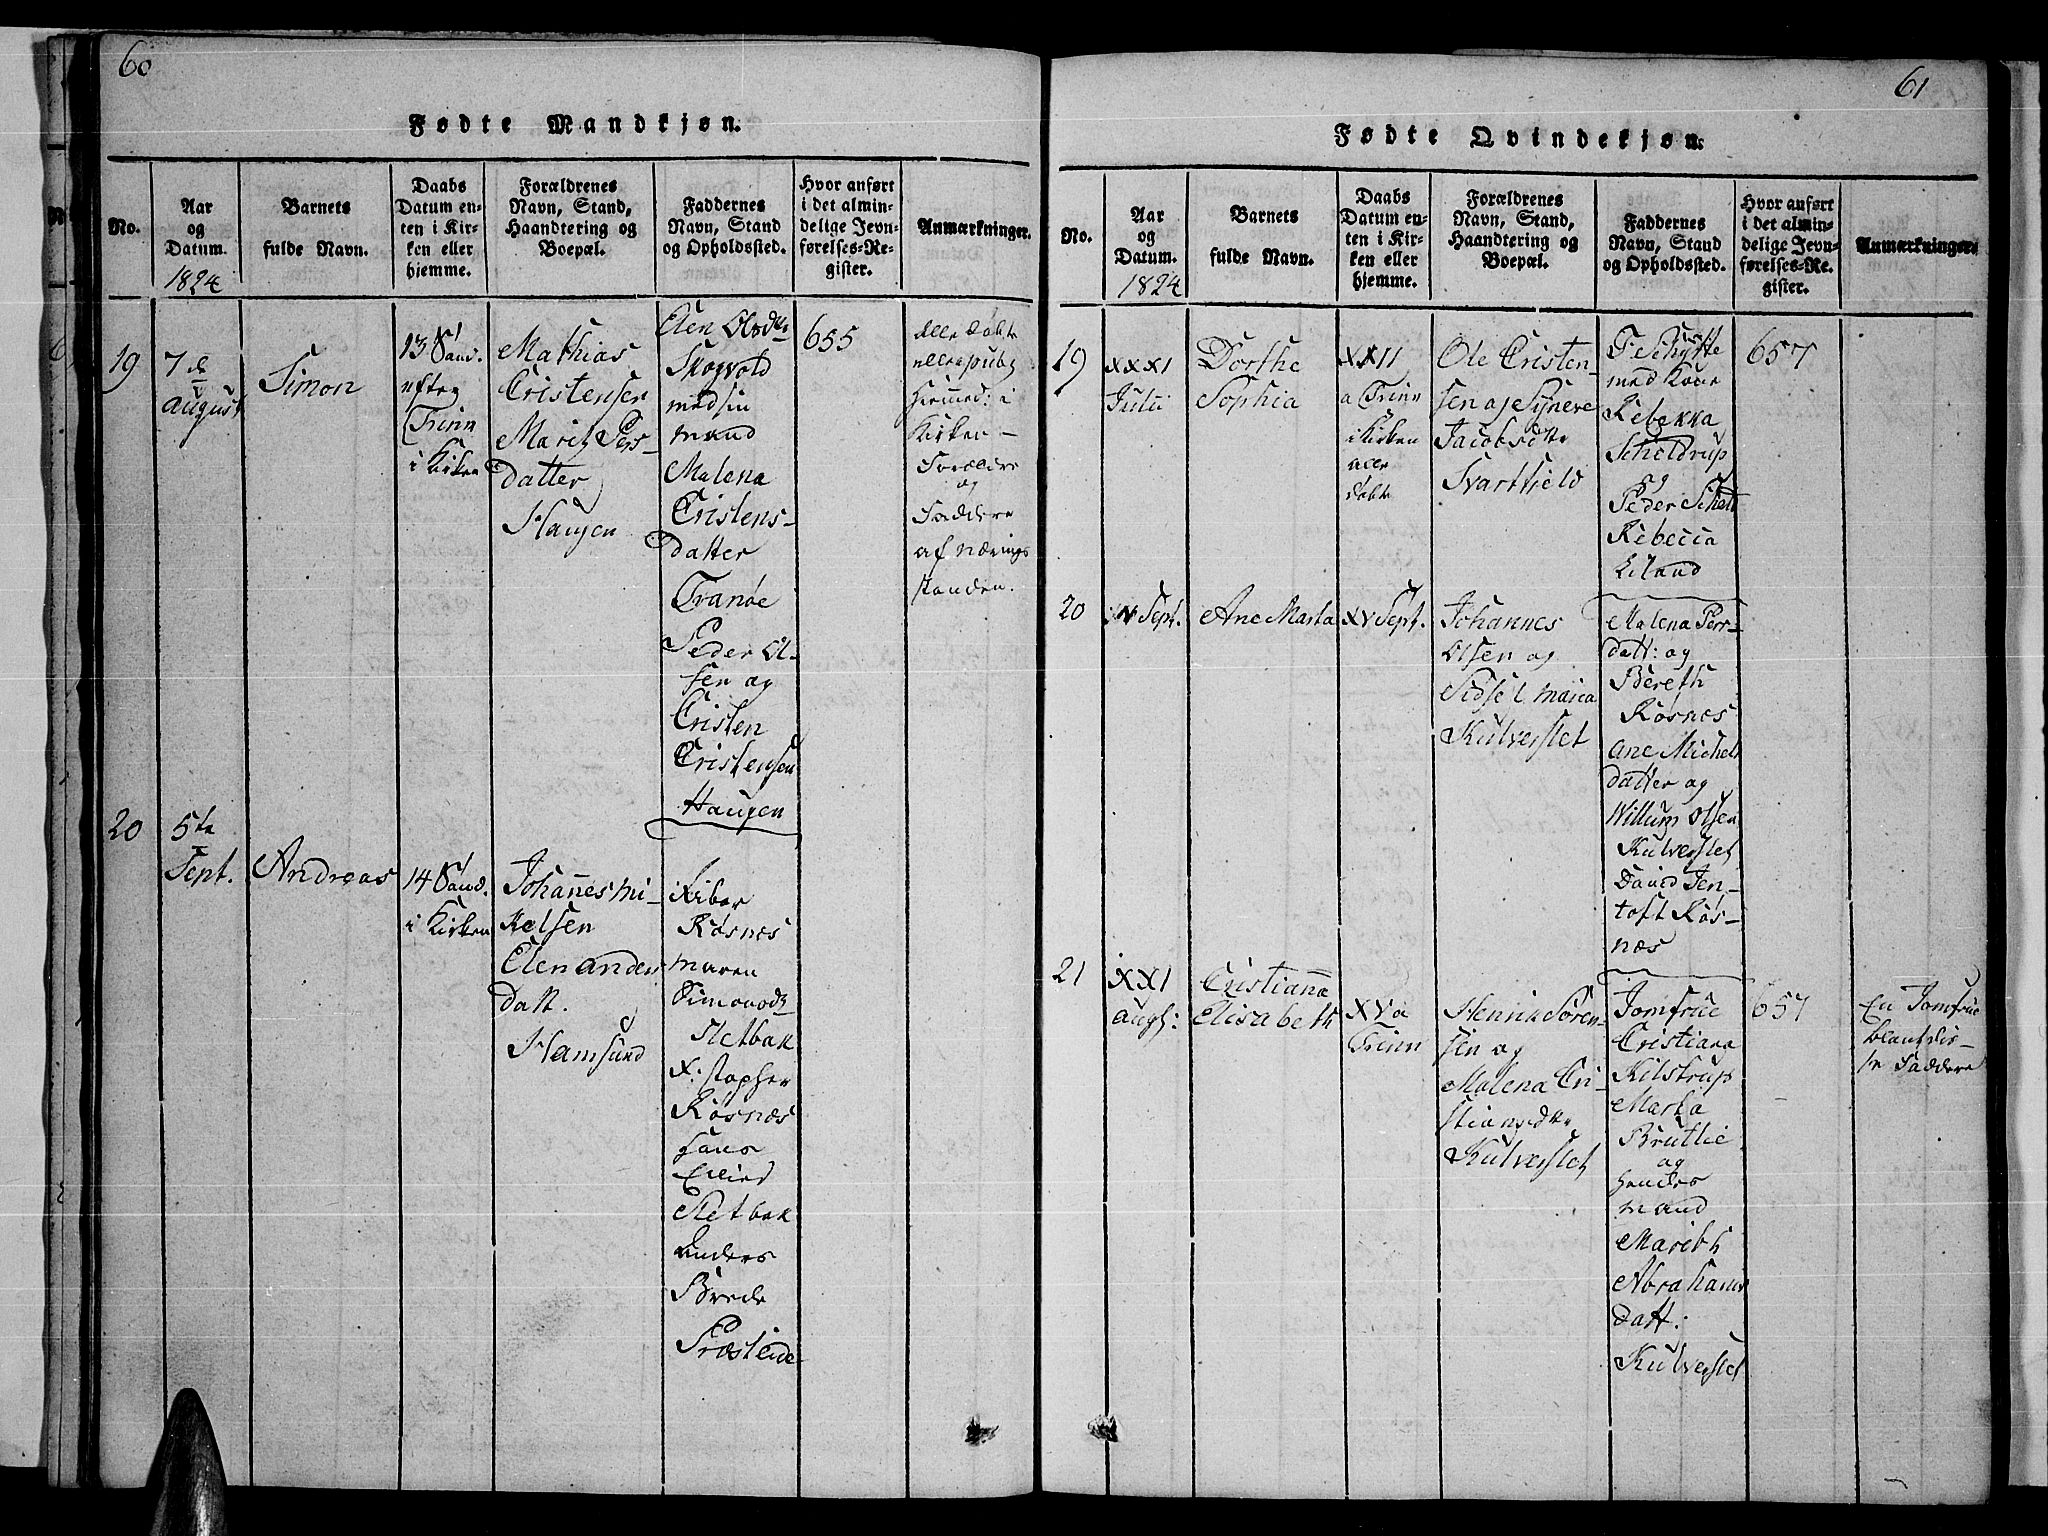 60
Fødte Mandkjøn.
No.
Aar
og
Datum.
1824
Barnets
fulde Navn.
Daabs
Datum en-
ten i Kir-
ken eller
hjemme.
Forældrenes
Navn, Stand,
Haandtering og
Boepæl.
Faddernes
Navn, Stand
og Opholdssted.
Hvor anført
i det almin-
delige Jevn-
førelses-Re-
gister.
Anmærkninger.
19
7de
August
Simon
13 Sønd.
efter
Trinn
i Kirken
Mathias
Cristensen
Marit Pers
datter
Haugen
Elen Olsdtr
Skogvold
med sin
mand
Malena
Cristens-
datter
Tranøe
Peder Ol-
sen og
Cristen
Cristensen
Haugen
655
alle døbte
i
Kirken -
Forældre
og
Faddere
af nærings
standen.
20
5te
Sept.
Andreas
14 Sønd.
i Kirken
Johañes Mi-
kelsen
Elen Anders
datt.
Hamsund
Røsnes
Maren
Simonsdtr
Sletbak
X:stopher
Røsnæs
Hans
Eilert
Sletbak
Anders
Brede
Præsteide
61
Fødte Qvindekjøn.
No.
Aar
og
Datum.
1824
Barnets
fulde Navn.
Daabs
Datum en-
ten i Kir-
ken eller
hjemme.
Forældrenes
Navn, Stand,
Haandtering og
Boepæl.
Faddernes
Navn, Stand
og Opholdssted.
Hvor anført
i det almin-
delige Jevn-
førelses-Re-
gister.
Anmærkninger.
19
XXXI
Julii
Dorthe
Sophia
XXII
a Trinn
i Kirken
alle
døbte
Ole Cristen-
sen og Syneve
Jacobsdtr
Svartfield
F. Schytte
med Kone
Rebekka
Scheldrup
og
Peder Scheld
Rebecca
Eiland
657
20
IV Sept.
Ane Marta
XV Sept.
Johannes
Olsen og
Sidsel Maria
Kulverslet
Malena Pers-
datt: og
Bereth
Røsnes
Ane Michels
datter og
Willum Olsen
Kulverslet
David Jen-
toft Røs-
næs
21
XXI
Augs:
Cristiaña
Elisabeth
XV a
Trinn
Henrik Søren-
sen og
Malena Cri-
stiansdtr
Kulverslet
Jomfrue
Cristiana
Kilstrup
Marta
Brutlie
og
hendes
mand
Marith
Abrahams
datt:
Kulverslet
657
En Jomfrue
blant dis-
se Faddere